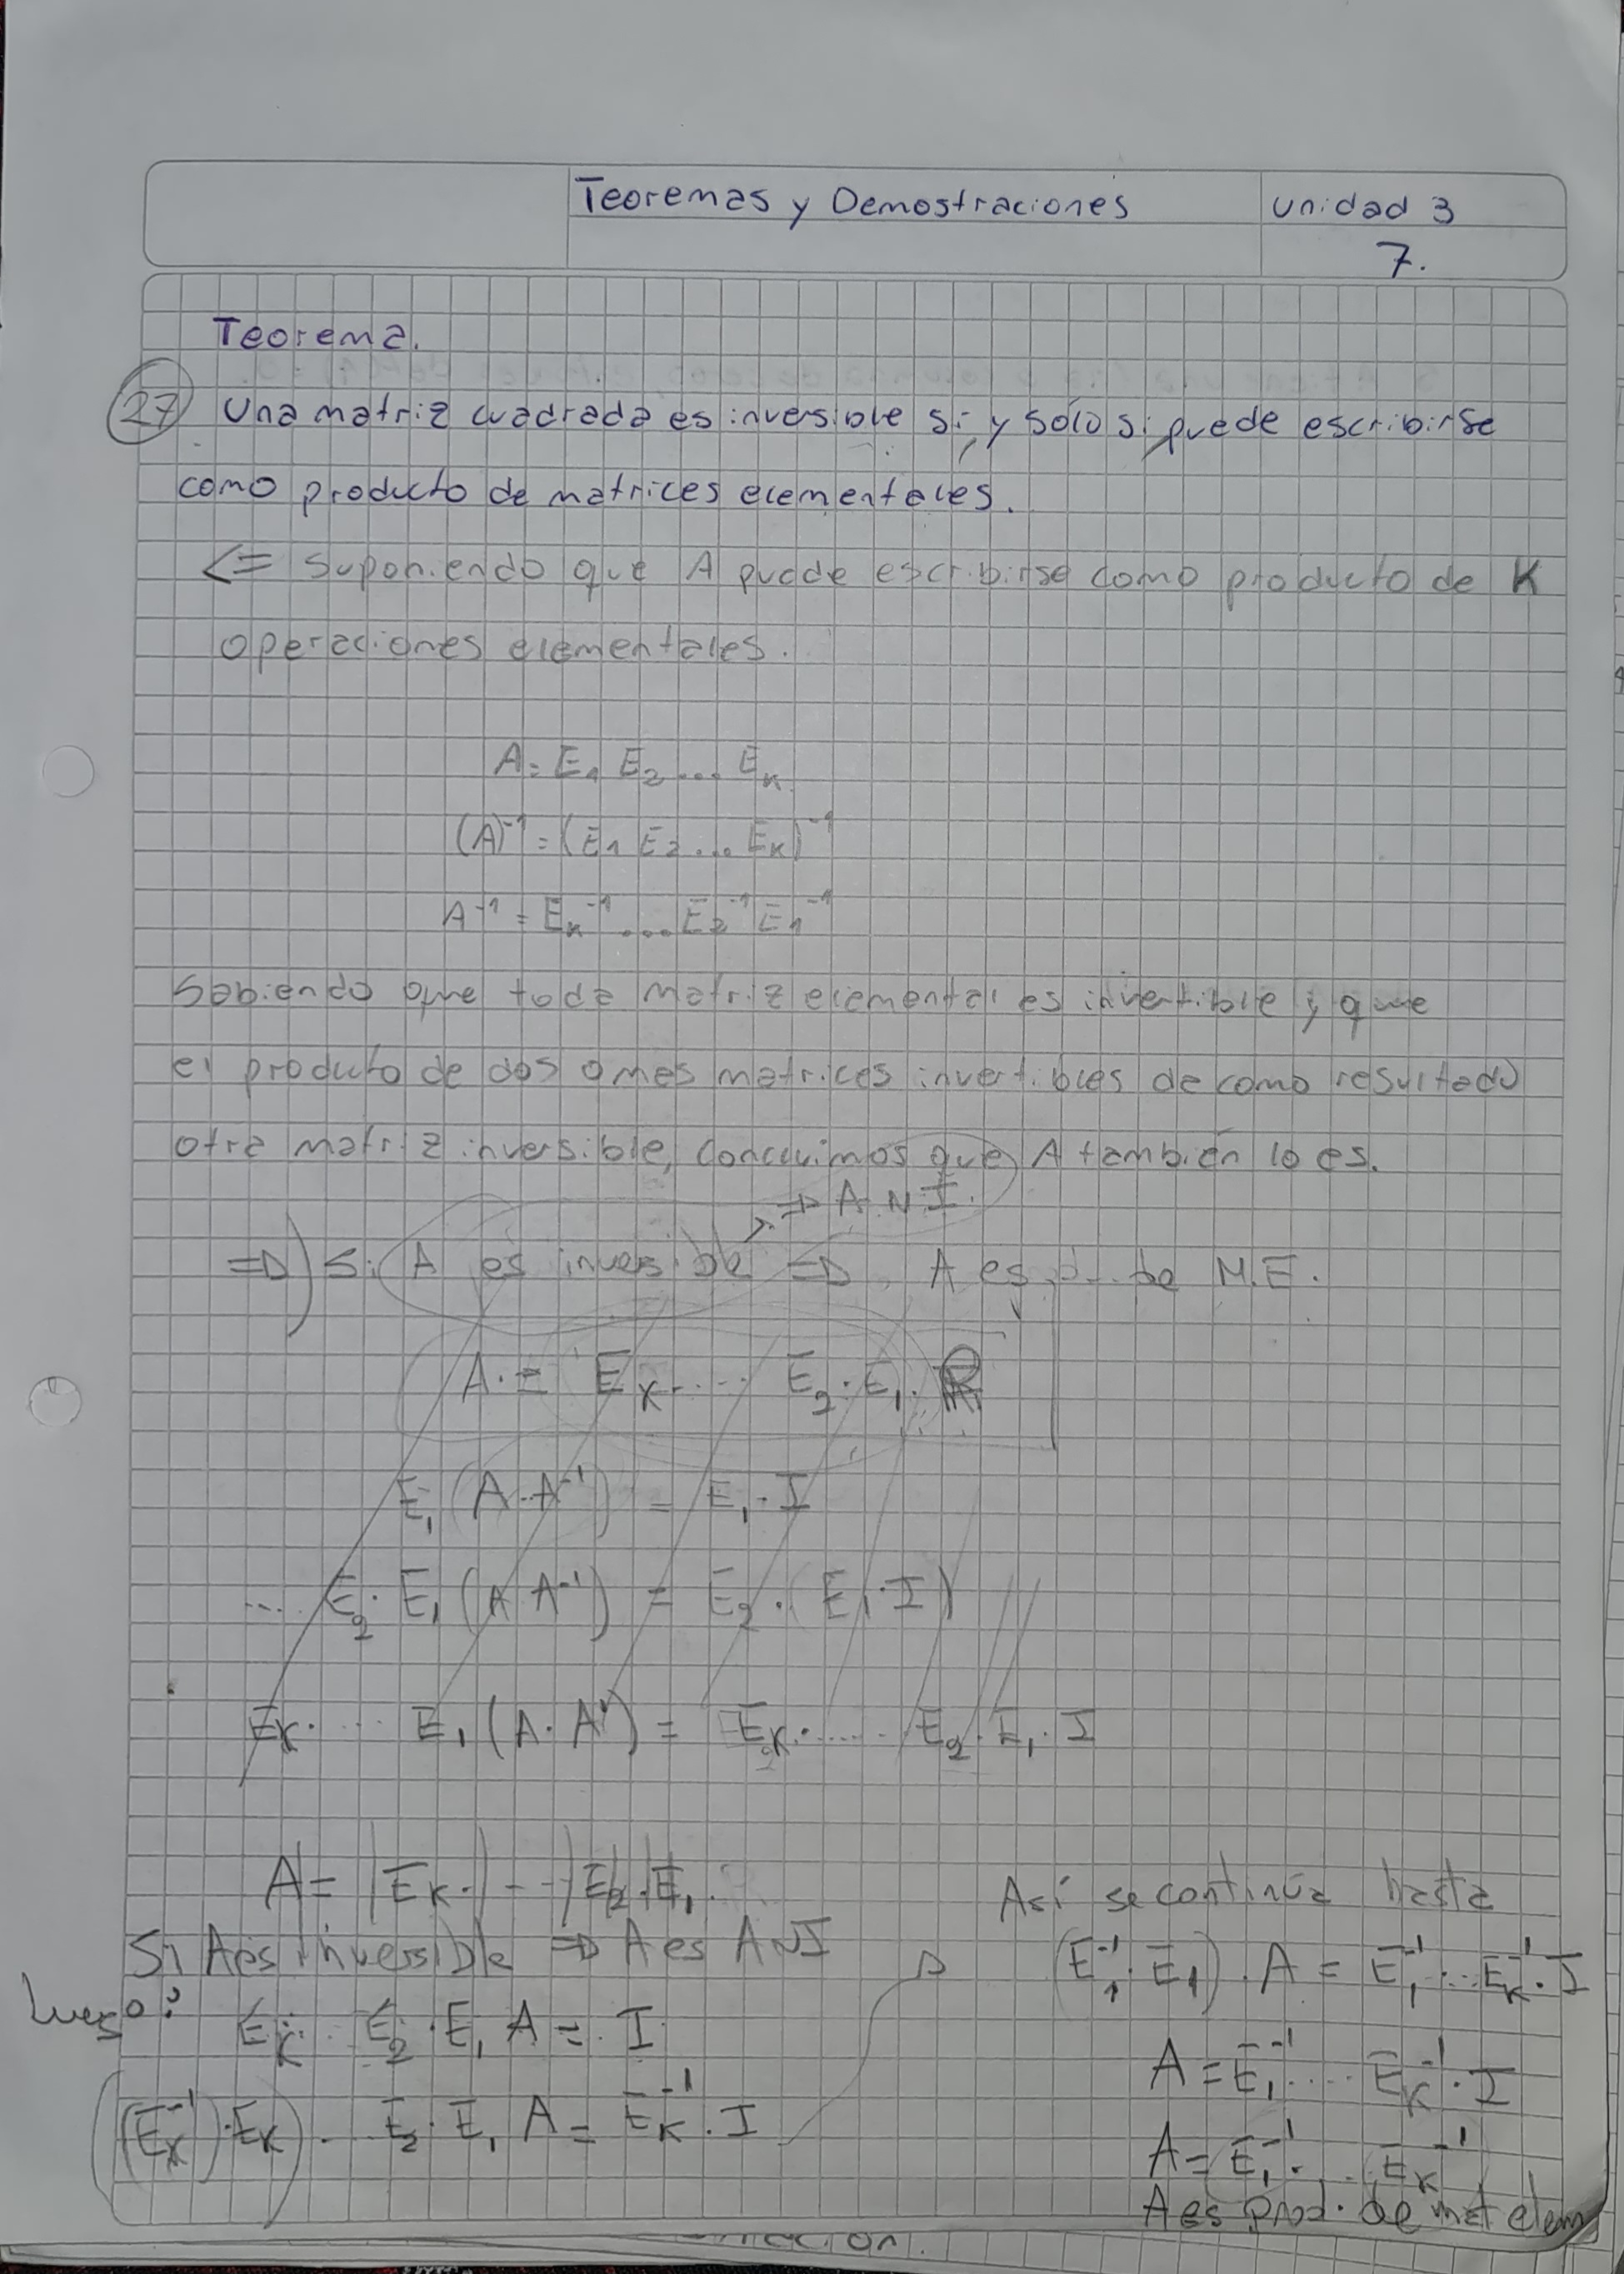 Teoremas y Demostraciones
unidad 3
7.
Teorema.
27 Una matriz cuadrada es inversible si, y sólo si puede escribirse
como producto de matrices elementales.
<= Suponiendo que A puede escribirse como producto de K
operaciones elementales.
A = E₁ E₂ ... Eₖ
(A)⁻¹ = (E₁ E₂ ... Eₖ)⁻¹
A⁻¹ = Eₖ⁻¹ ... E₂⁻¹ E₁⁻¹
Sabiendo que toda matriz elemental es invertible y que
el producto de dos o mas matrices invertibles de como resultado
otra matriz inversible, concluimos que A también lo es.
⇒ A ~ I.
⇒) Si A es inversible ⇒ A es de M.E.
A = Eₖ .... E₂ . E₁ .
E₁ (A . A⁻¹) = E₁ . I
... E₂ . E₁ (A A⁻¹) = E₂ . (E₁ . I)
Eₖ . ... E₁ (A . A⁻¹) = Eₖ . ..... E₂ . E₁ . I
A = Eₖ . ... E₂ . E₁ .
Si A es inversible ⇒ A es A ~ I
Luego:
Eₖ ... E₂ . E₁ A = I
((Eₖ⁻¹) . Eₖ) . .. E₂ . E₁ A = Eₖ⁻¹ . I
Así se continúa hasta
(E₁⁻¹ . E₁) . A = E₁⁻¹ ... Eₖ⁻¹ . I
A = E₁⁻¹ .... Eₖ⁻¹ . I
A = E₁⁻¹ . ... Eₖ⁻¹
A es prod. de mat elem